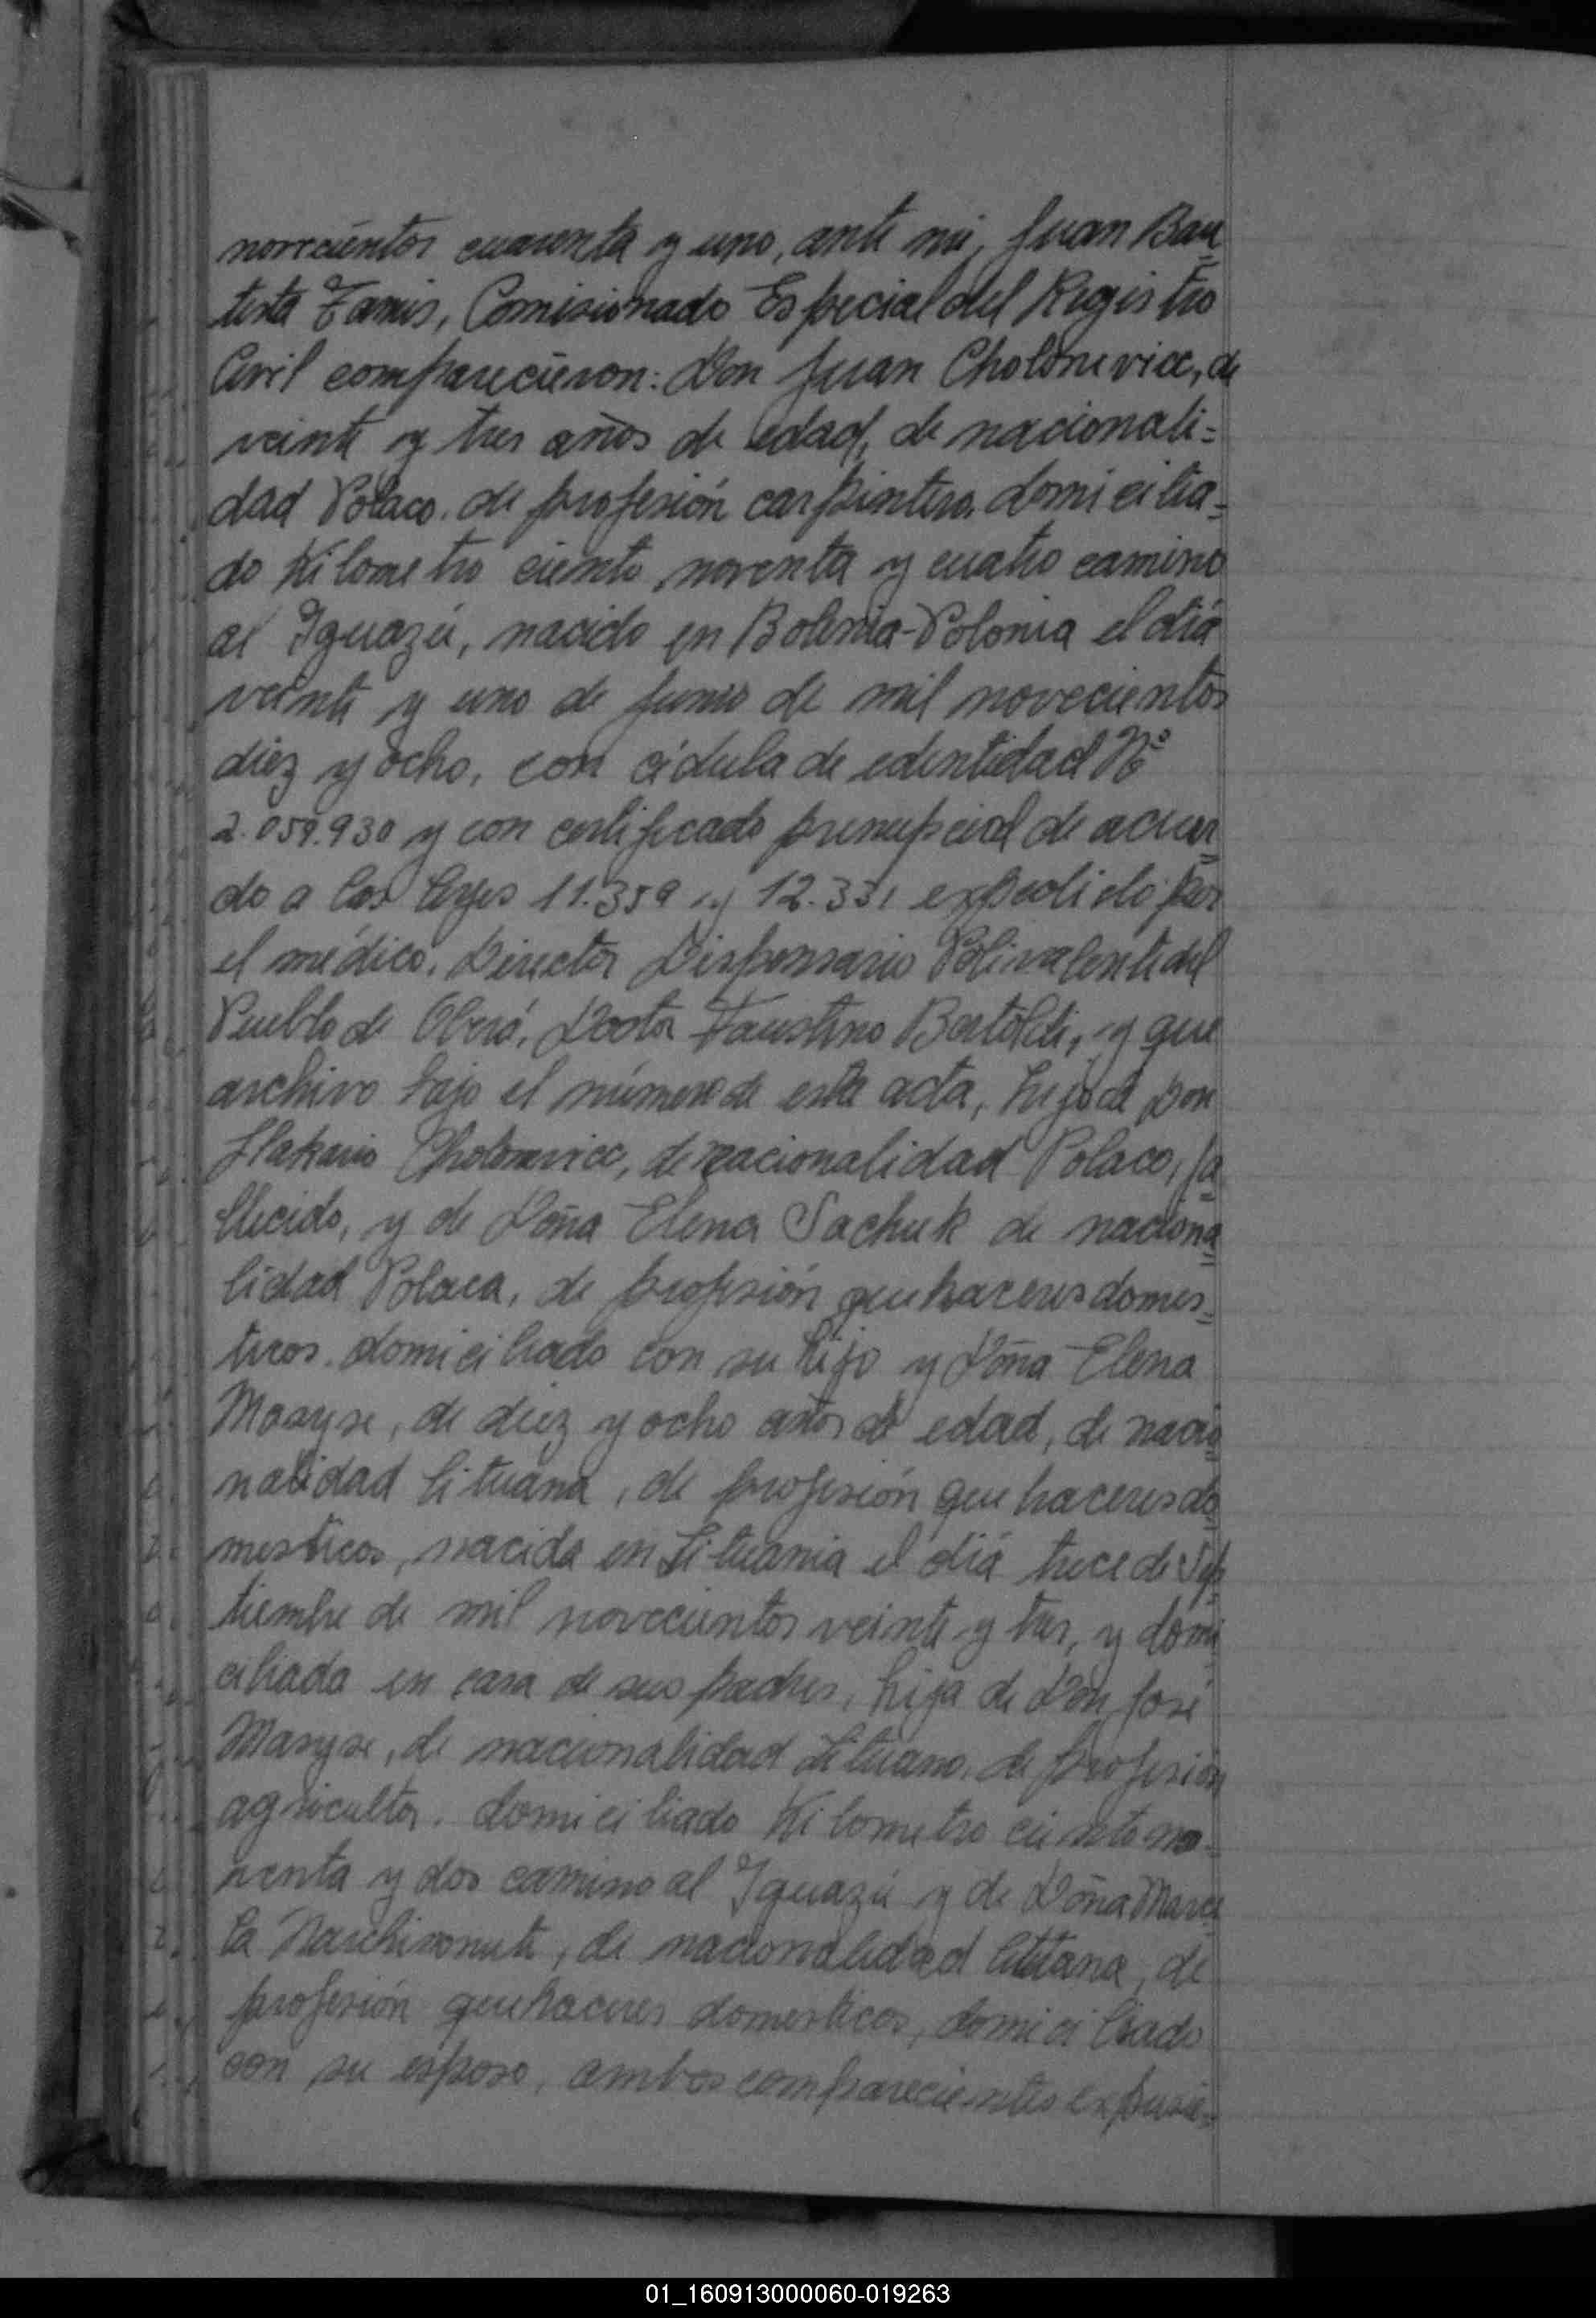 novecientos cuarenta y uno, ante mi, Juan Bau
tista Zamis, Comisionado Especial del Registro
Civil comparecieron: Don Juan Cholonevicc, de
veinte y tres años de edad, de nacionali=
dad Polaco. de profesión carpintero. domicilia=
do Kilometro ciento noventa y cuatro camino
al Iguazú, nacido en Bolinia-Polonia el día
veinte y uno de Junio de mil novecientos
diez y ocho, con cédula de edentidad Nº
2.059.930 y con certificado prenupcial de acuer
do a las leyes 11.359 y 12.331 expedido por
el médico. Director Dispensario Polivalente del
Pueblo de Oberá, Doctor Faustino Bertoldi, y que
archivo bajo el número de este acta, hijo de Don
Cholonevicc, de nacionalidad Polaco, fa
llecido, y de Doña Elena Sachuk de naciona
lidad Polaca, de profesión quehaceres domes=
ticos. domiciliado con su hijo y Doña Elena
Masyse, de diez y ocho años de edad, de nacio
nalidad lituana, de profesión quehaceres do
mesticos, nacida en Lituania el día trece de Sep
tiembre de mil novecientos veinte y tres, y domi
ciliada en casa de sus padres, hija de Don José
Masyse, de nacionalidad Lituano. de profesión
agricultor. domiciliado Kilometro ciento no-
venta y dos camino al Iguazú y de Doña Marce
la de nacionalidad lituana, de
profesión quehaceres domesticos, domiciliado
con su esposo, ambos comparecientes expusie=
01_160913000060-019263